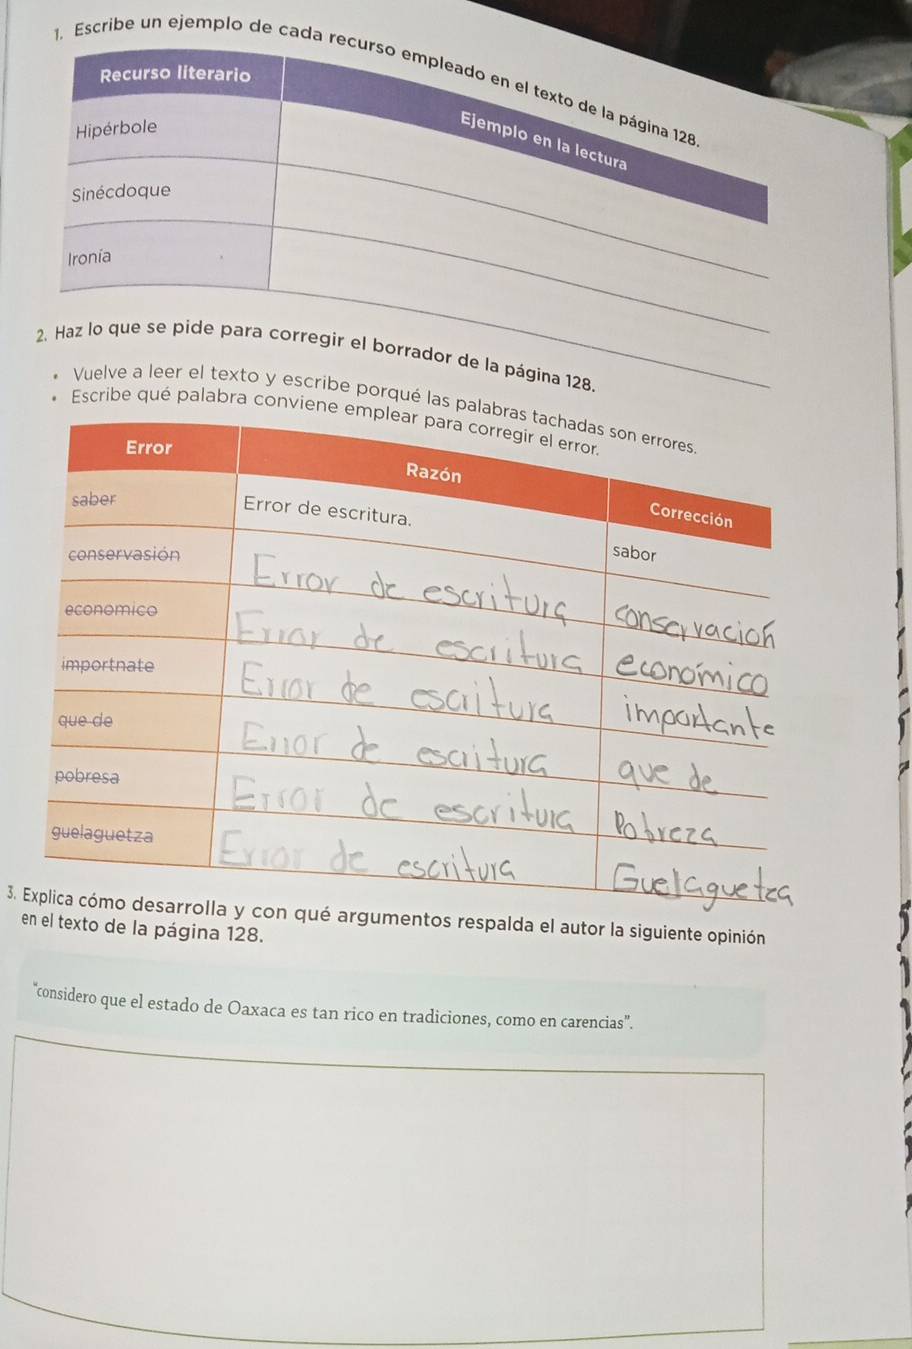 1. Escribe un ejemplo de cada recurso empleado en el texto de la página 128.
Recurso literario
Ejemplo en la lectura
Hipérbole
Sinécdoque
Ironía
2. Haz lo que se pide para corregir el borrador de la página 128.
• Vuelve a leer el texto y escribe porqué las palabras tachadas son errores.
• Escribe qué palabra conviene emplear para corregir el error.
Error
Razón
Corrección
saber
Error de escritura.
sabor
conservasión
Error de escritura
conservacion
economico
Error de escritura
económico
importnate
Error de escritura
importante
que de
Error de escritura
que de
pobresa
Error de escritura
Pobreza
guelaguetza
Error de escritura
Guelaguetza
3. Explica cómo desarrolla y con qué argumentos respalda el autor la siguiente opinión
en el texto de la página 128.
"considero que el estado de Oaxaca es tan rico en tradiciones, como en carencias".